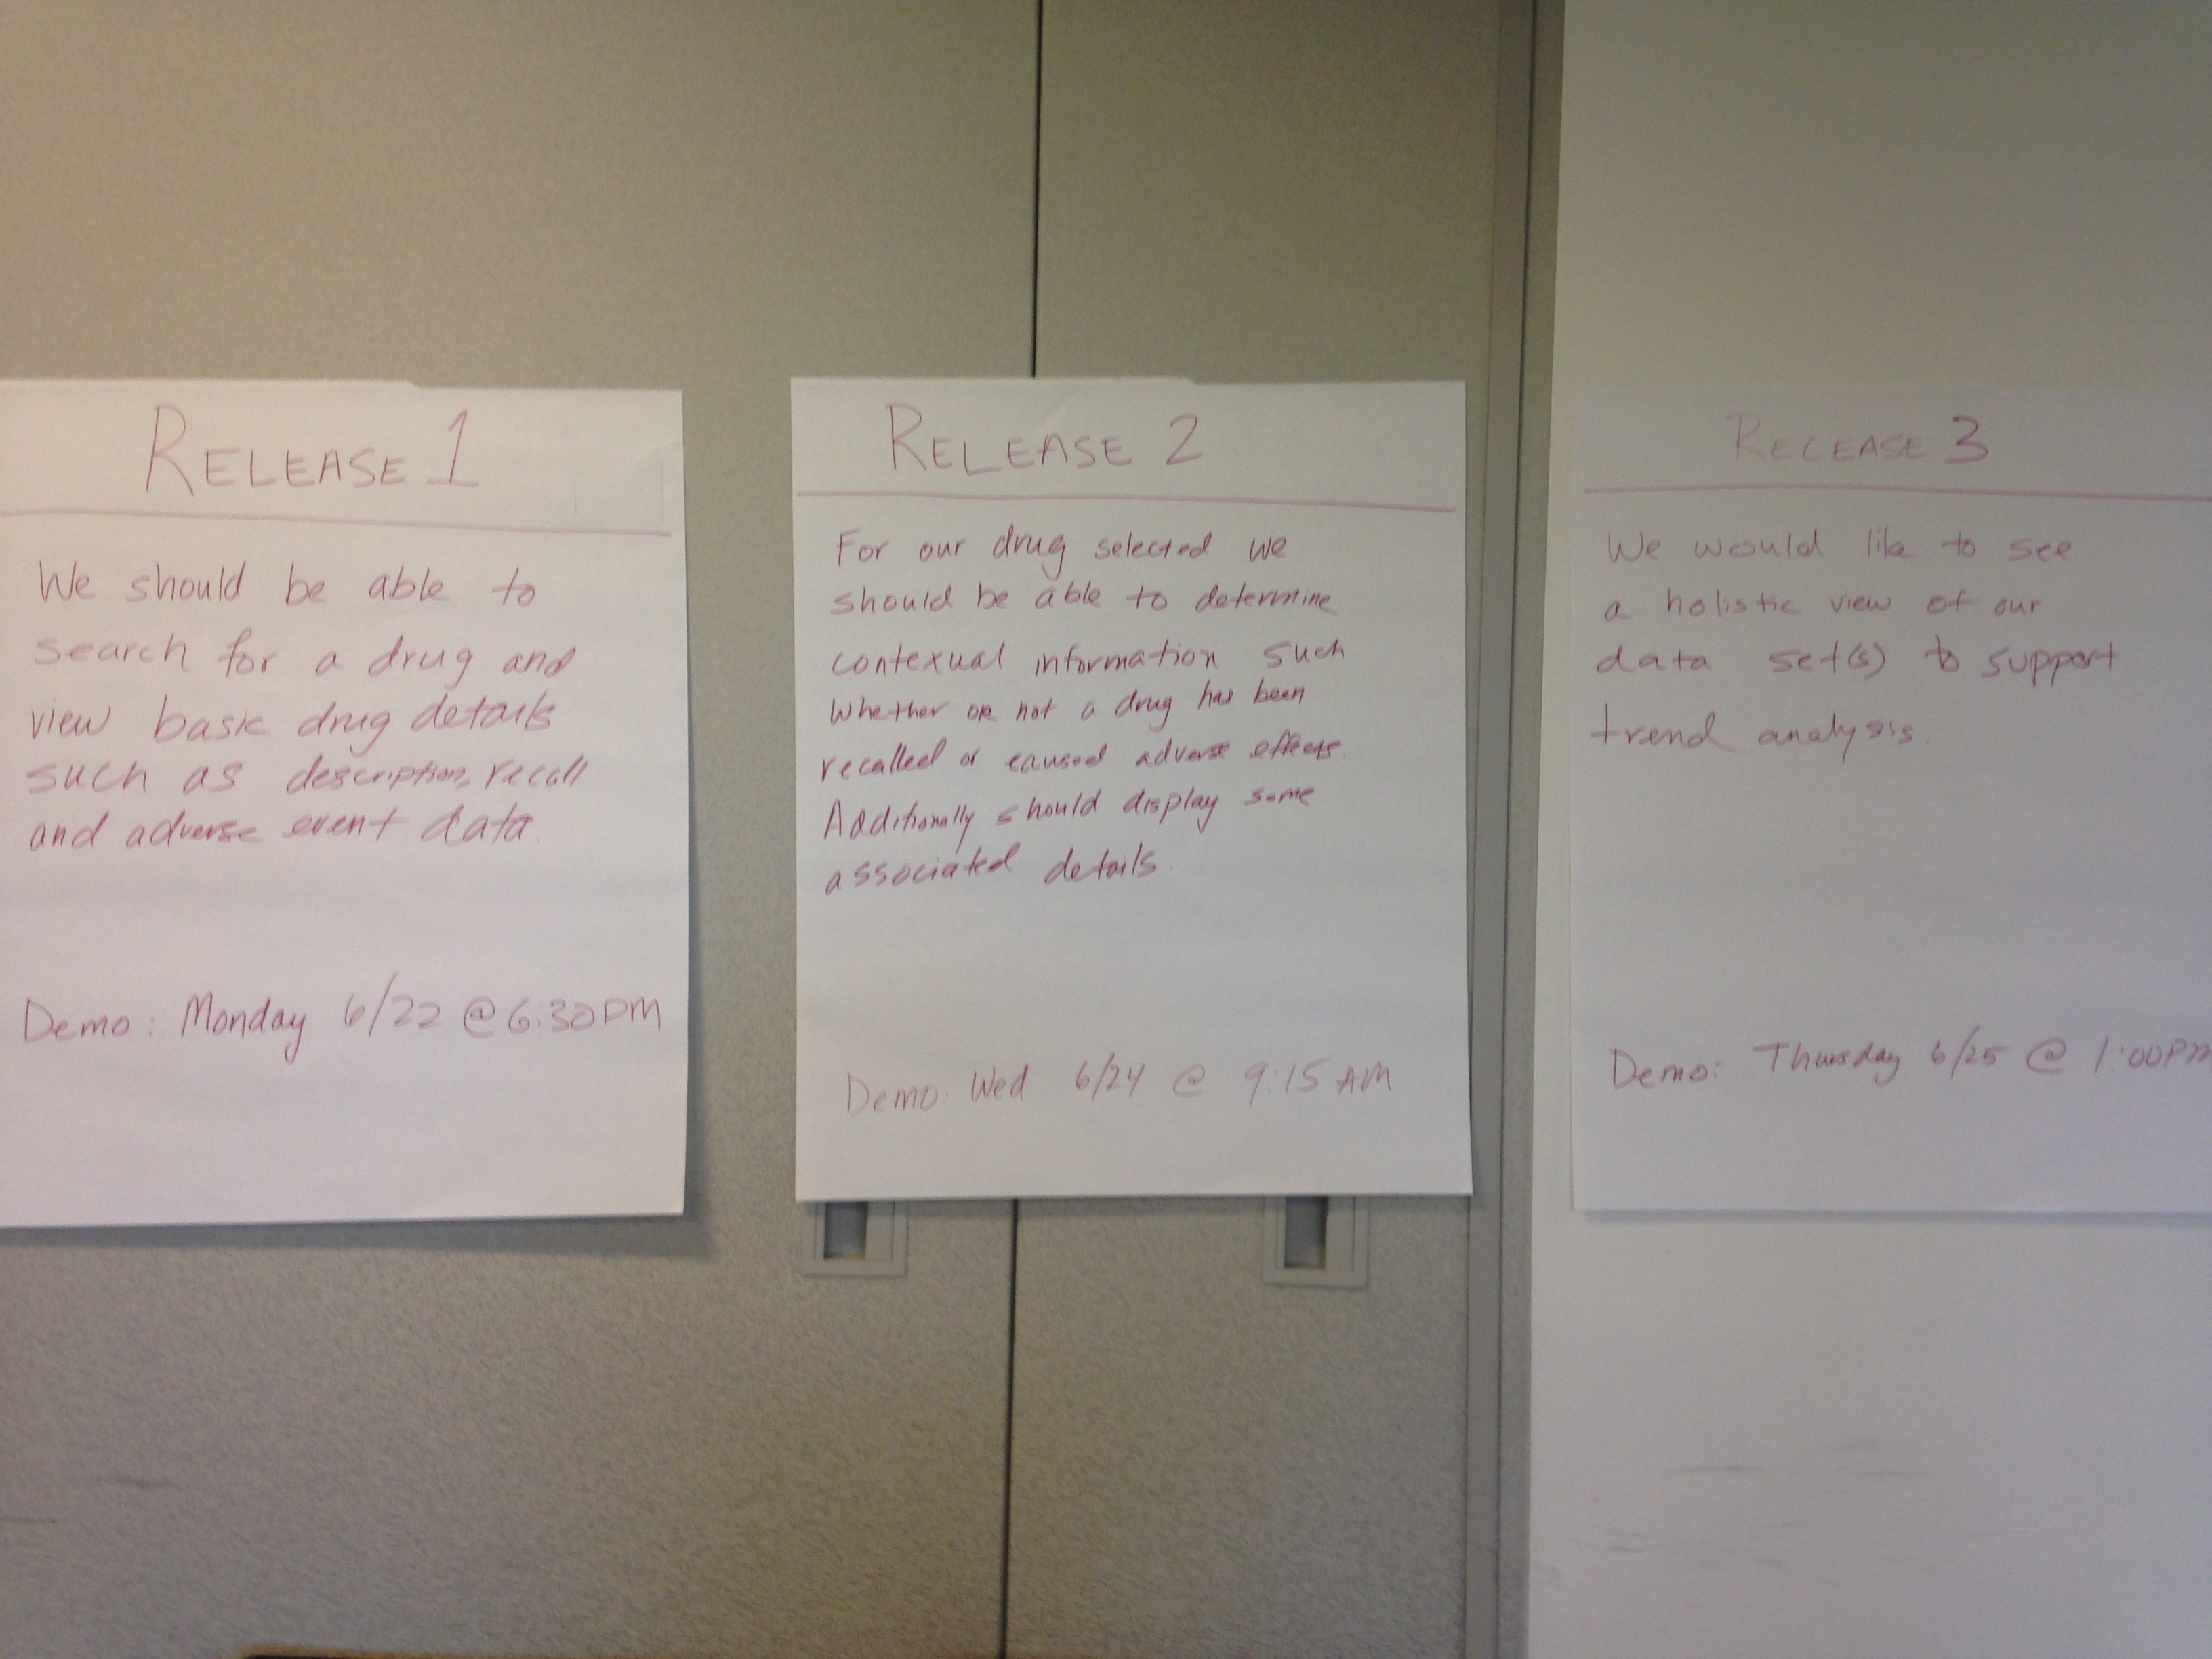 RELEASE 1
We should be able to
search for a drug and
view basic drug details
such as description, recall
and adverse event data.
Demo: Monday 6/22 @ 6:30PM
RELEASE 2
For our drug selected we
should be able to determine
contexual information such
whether or not a drug has been
recalled or caused adverse effects.
Additionally should display some
associated details.
Demo: Wed 6/24 @ 9:15 AM
RELEASE 3
We would like to see
a holistic view of our
data set(s) to support
trend analysis.
Demo: Thursday 6/25 @ 1:00PM